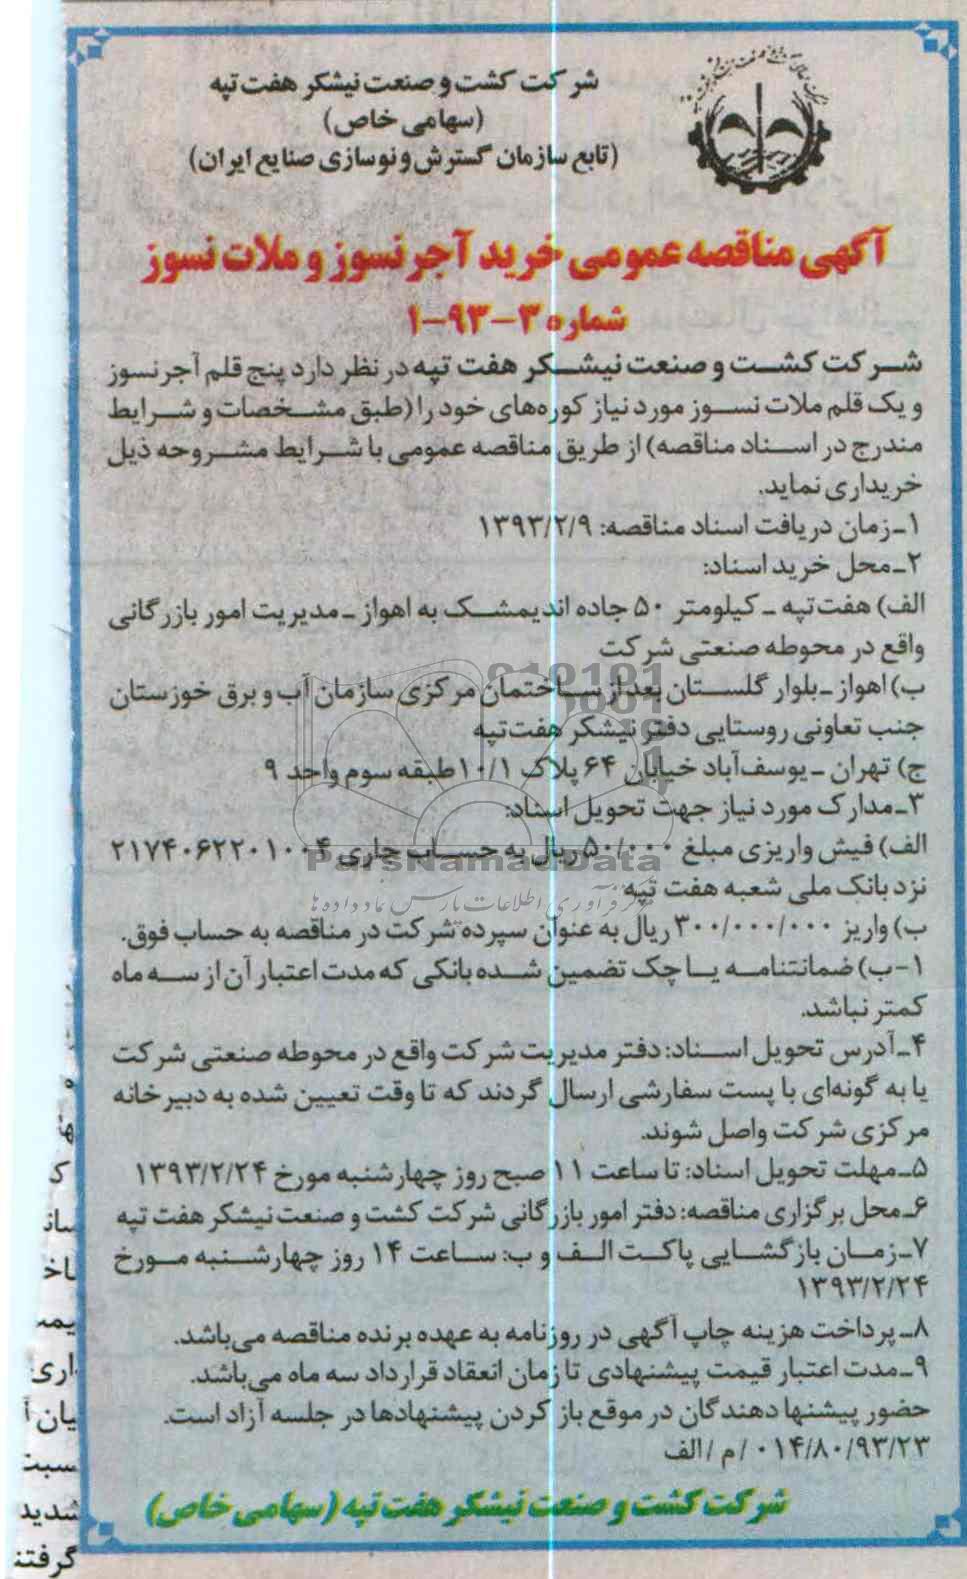 شرکت کشت و صنعت نیشکر هفت تپه
(سهامی خاص)
(تابع سازمان گسترش و نوسازی صنایع ایران)
آگهی مناقصه عمومی خرید آجر نسوز و ملات نسوز
شماره ۳-۹۳-۱
شرکت کشت و صنعت نیشکر هفت تپه در نظر دارد پنج قلم آجرنسوز
و یک قلم ملات نسوز مورد نیاز کوره‌های خود را (طبق مشخصات و شرایط
مندرج در اسناد مناقصه) از طریق مناقصه عمومی با شرایط مشروحه ذیل
خریداری نماید.
۱ـ زمان دریافت اسناد مناقصه: ۱۳۹۳/۲/۹
۲ـ محل خرید اسناد:
الف) هفت‌تپه ـ کیلومتر ۵۰ جاده اندیمشک به اهواز ـ مدیریت امور بازرگانی
واقع در محوطه صنعتی شرکت
ب) اهواز ـ بلوار گلستان بعد از ساختمان مرکزی سازمان آب و برق خوزستان
جنب تعاونی روستایی دفتر نیشکر هفت‌تپه
ج) تهران ـ یوسف‌آباد خیابان ۶۴ پلاک ۱۰/۱ طبقه سوم واحد ۹
۳ـ مدارک مورد نیاز جهت تحویل اسناد:
الف) فیش واریزی مبلغ ۵۰/۰۰۰ ریال به حساب جاری ۲۱۷۴۰۶۲۲۰۱۰۰۴
ParsNamadData
نزد بانک ملی شعبه هفت تپه
مرکز فرآوری اطلاعات پارس نماد داده ها
ب) واریز ۳۰۰/۰۰۰/۰۰۰ ریال به عنوان سپرده شرکت در مناقصه به حساب فوق.
۱-ب) ضمانتنامه یا چک تضمین شده بانکی که مدت اعتبار آن از سه ماه
کمتر نباشد.
۴ـ آدرس تحویل اسناد: دفتر مدیریت شرکت واقع در محوطه صنعتی شرکت
یا به گونه‌ای با پست سفارشی ارسال گردند که تا وقت تعیین شده به دبیرخانه
مرکزی شرکت واصل شوند.
۵ـ مهلت تحویل اسناد: تا ساعت ۱۱ صبح روز چهارشنبه مورخ ۱۳۹۳/۲/۲۴
۶ـ محل برگزاری مناقصه: دفتر امور بازرگانی شرکت کشت و صنعت نیشکر هفت تپه
۷ـ زمان بازگشایی پاکت الف و ب: ساعت ۱۴ روز چهارشنبه مورخ
۱۳۹۳/۲/۲۴
۸ـ پرداخت هزینه چاپ آگهی در روزنامه به عهده برنده مناقصه می‌باشد.
۹ـ مدت اعتبار قیمت پیشنهادی تا زمان انعقاد قرارداد سه ماه می‌باشد.
حضور پیشنها دهندگان در موقع باز کردن پیشنهادها در جلسه آزاد است.
۰۱۴/۸۰/۹۳/۲۳ /م /الف
شرکت کشت و صنعت نیشکر هفت تپه (سهامی خاص)